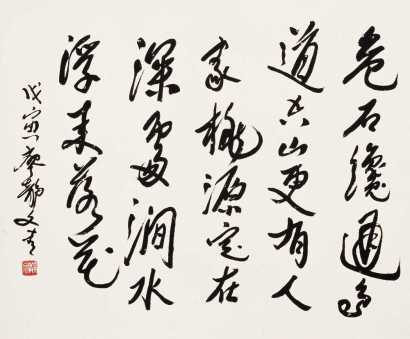 危石纔通鸟
道空山更有人
家桃源定在
深處澗水
浮来落花
戊寅廖静文书